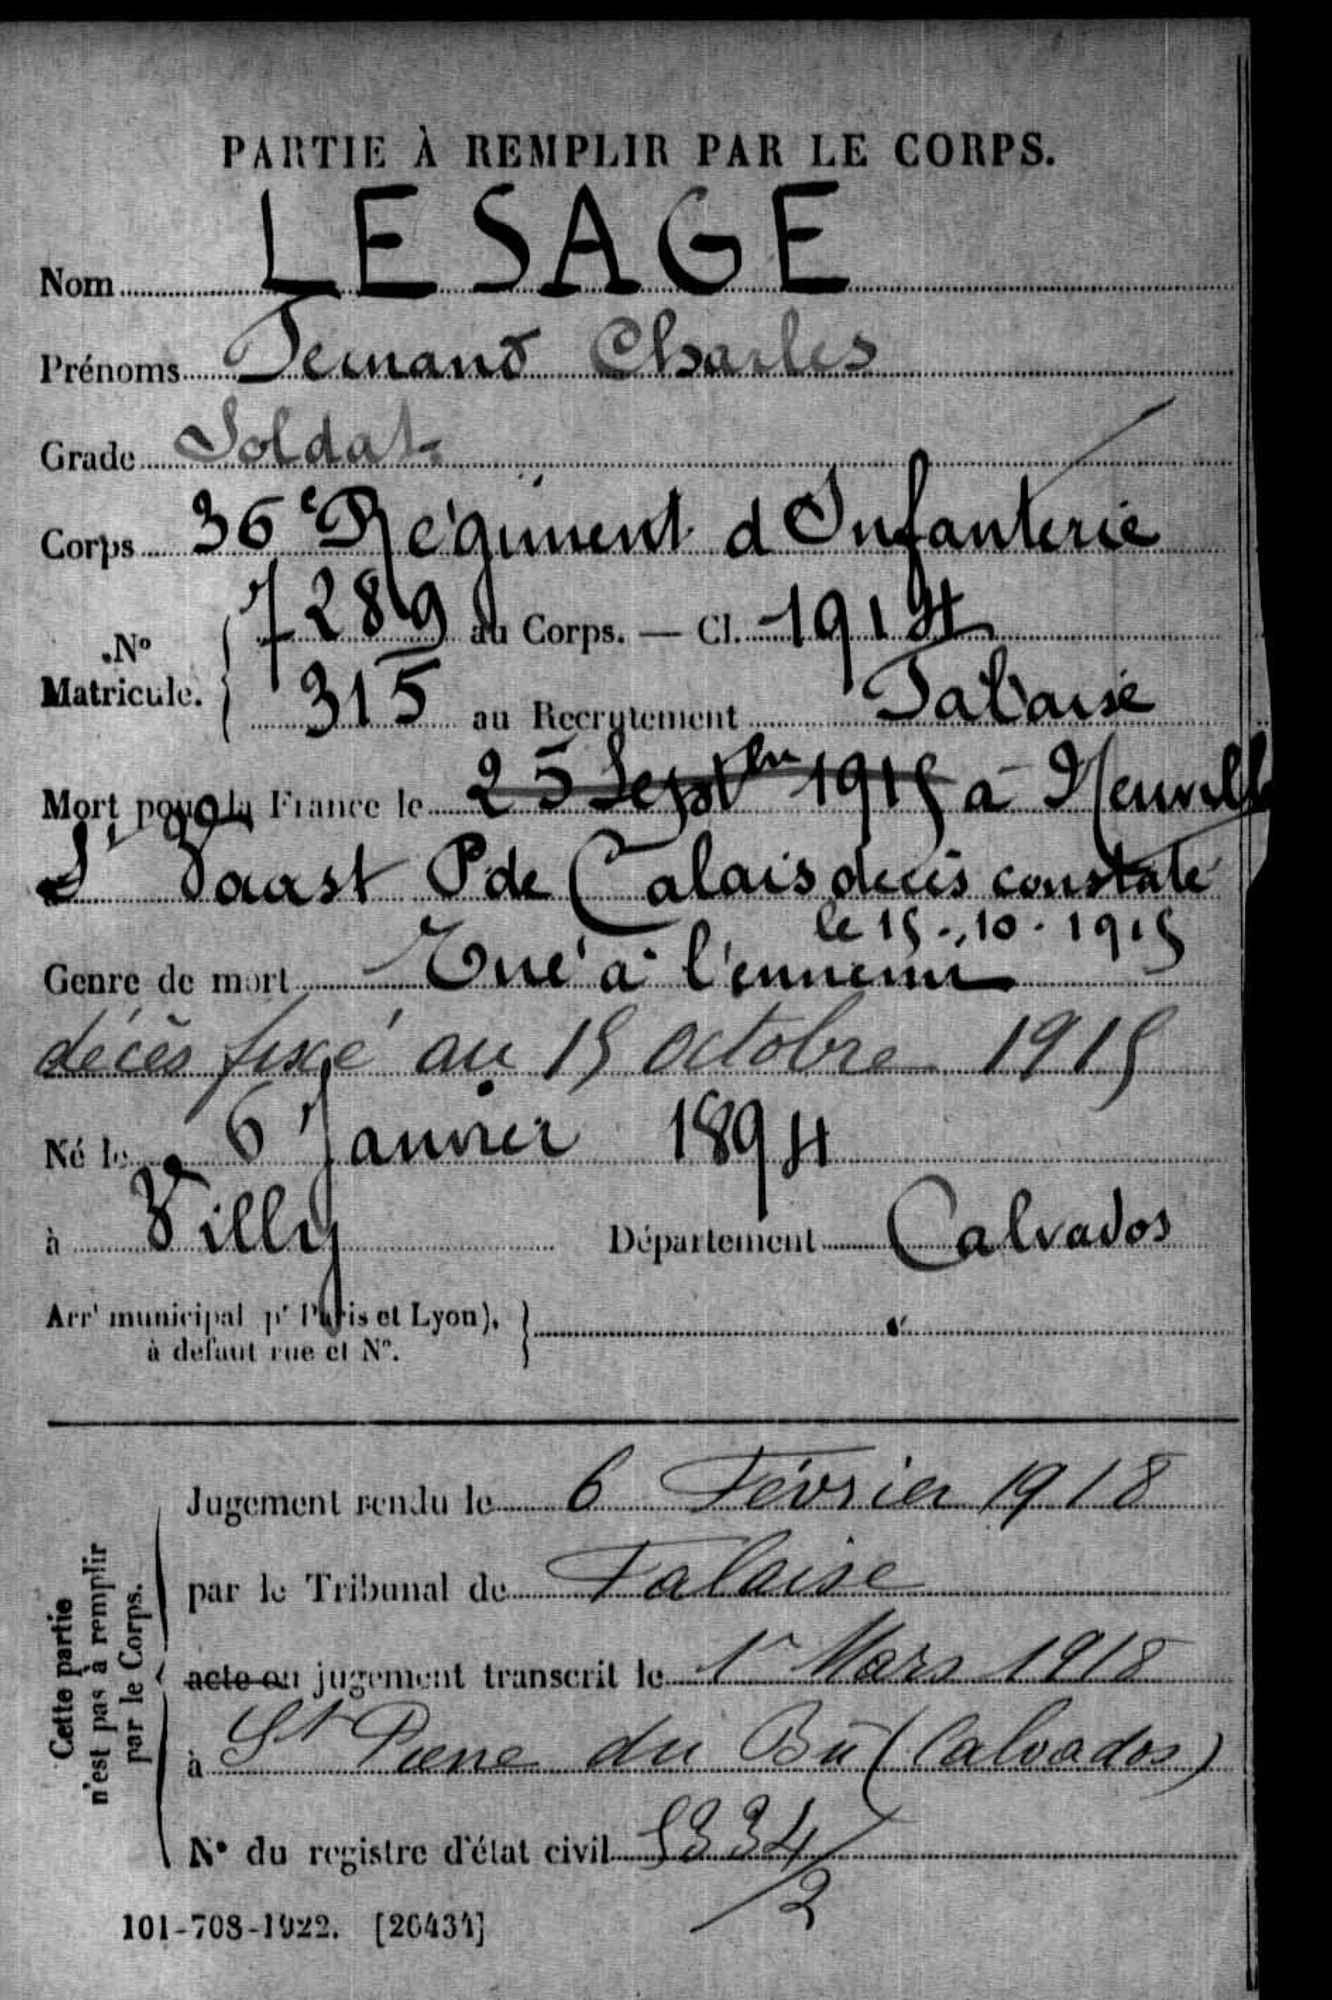 PARTIE À REMPLIR PAR LE CORPS.
Nom LESAGE
Prénoms Fernand Charles
Grade Soldat
Corps 36e Régiment d Infanterie
N° Matricule. 7289 au Corps. — Cl. 1914
315 au Recrutement Falaise
Mort pour la France le 25 Septbre 1915 à Neuville
St Vaast P de Calais décès constaté
le 15-10-1915
Genre de mort Tué à l'ennemi
décès fixé au 15 octobre 1915
Né le 6 Janvier 1894
à Villy Département Calvados
Arrt municipal pr Paris et Lyon),
à défaut rue et N°.
Cette partie
n'est pas à remplir
par le Corps.
Jugement rendu le 6 Février 1918
par le Tribunal de Falaise
acte ou jugement transcrit le 1r Mars 1918
à St Pierre du Bû (Calvados)
N° du registre d'état civil 5334/2
101-708-1922. [26434]